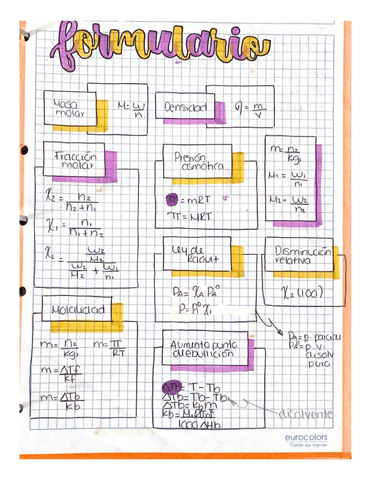 formulario
Masa
molar
M = w/n
Densidad
ρ = m/v
Fracción
molar
χ₂ = n₂/(n₂+n₁)
χ₁ = n₁/(n₁+n₂)
Presión
osmótica
= mRT
π = MRT
m = n₂/kg₁
M₁ = w₁/n₁
M₂ = w₂/n₂
Ley de
Raoult
P_A = χ_A P_A°
P = P° χ₁
Disminución
relativa
χ₂ (100)
P_A = P. parcial
disolv
puro
Molalidad
m = n₂/kg₁
m = π/RT
m = ΔTf/kf
m = ΔTb/kb
Aumento punto
de ebullición
= T - Tb
ΔTb = Tb - Tb₁
ΔTb = kb m
1000 ΔHb
disolvente
eurocolors